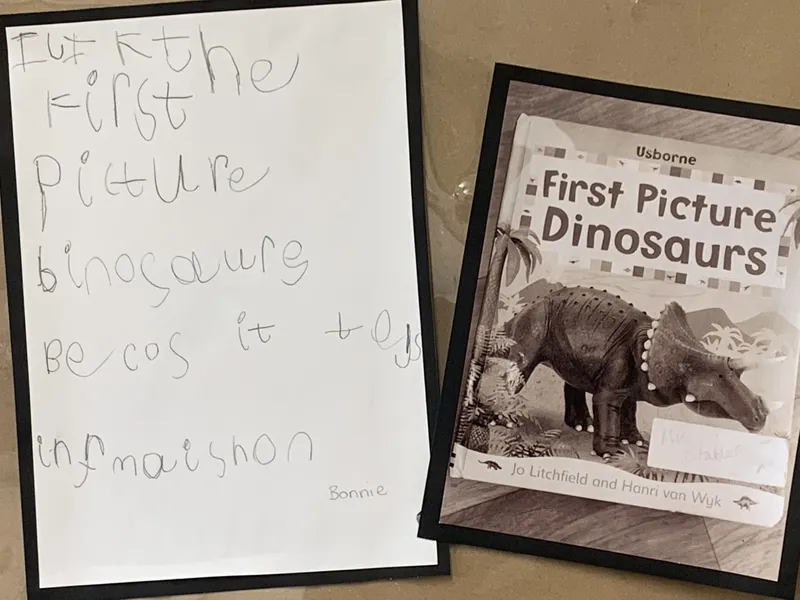 I lik the
first
picture
binosaurs
Becos it tels
infmaishon
Bonnie
Usborne
First Picture
Dinosaurs
Jo Litchfield and Hanri van Wyk